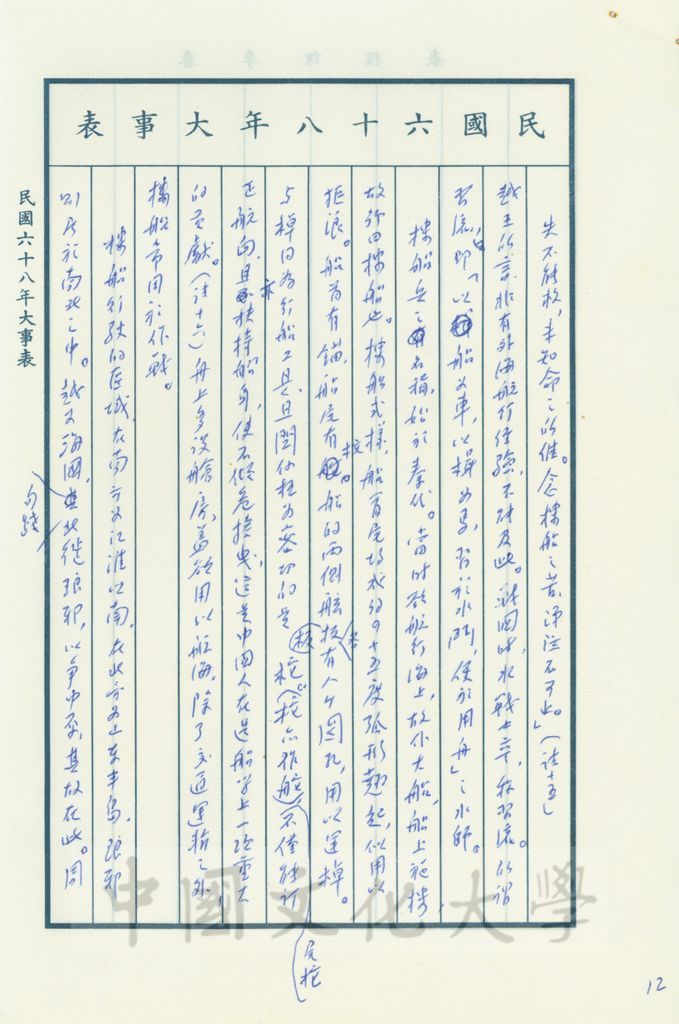 民國六十八年大事表
失不能救,未知命之所維。念樓船之苦,涕泣不可止。」(註十五)
越王所言,非有外海航行經驗,不能及此。戰國時水戰士卒,稱習流。所謂
習流,即「以船為車,以楫為馬,習於水鬥,便於用舟」之水師。
樓船兵之名稱,始於秦代。當時欲航行海上,故作大船,船上施樓,
故稱曰樓船也。樓船式樣,船首尾均成約四十五度弧形翹起,似用以
拒浪。船首有錨,船尾有柁,船的兩側舷板各有八個圓孔,用以運棹。
與棹同為行船工具,且關係極為密切的是柁。(柁亦作舵)尾柁不僅能訂
正航向,且亦扶持船身,使不傾危搖曳,這是中國人在造船學上一項重大
的貢獻。(註十六)舟上多設艙房,蓋欲用以航海,除了交通運輸之外,
樓船常用於作戰。
樓船行駛的區域,在南方為江淮以南,在北方為山東半島,琅邪
則居於南北之中。越為海國,句踐北徙琅邪,以爭中原,其故在此。周
民國六十八年大事表
中國文化大學
12